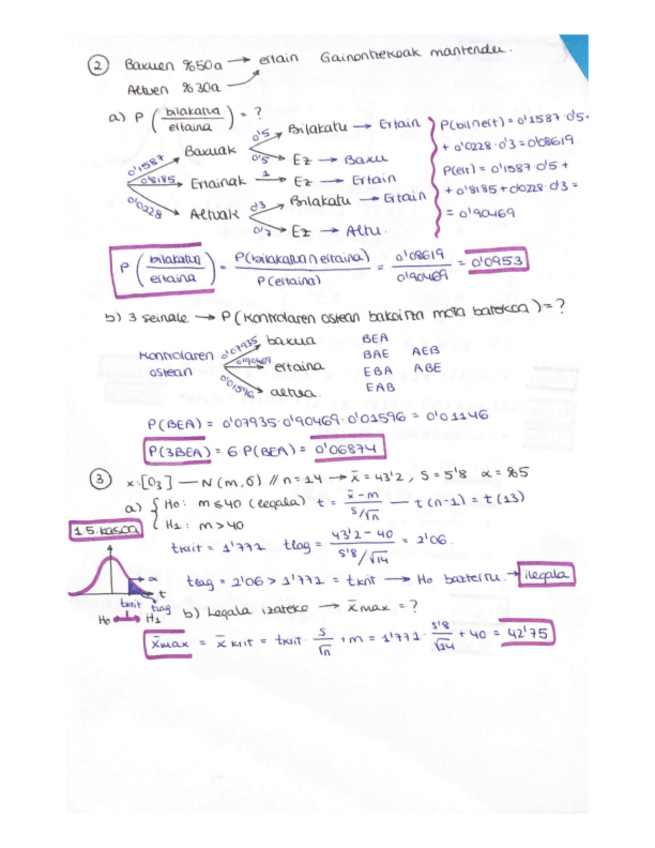 ② Baxuen %50a → ertain Gainontzekoak mantendu.
Altuen %30a
a) P (bilakatua / ertaina) = ?
0'1587 Baxuak 0'5 Bilakatu → Ertain
0'5 Ez → Baxu
0'8185 Ertainak 1 Ez → Ertain
0'0228 Altuak 0'3 Bilakatu → Ertain
0'7 Ez → Altu.
P(bil∩ert) = 0'1587·0'5+
+ 0'0228·0'3 = 0'08619.
P(ert) = 0'1587·0'5 +
+ 0'8185 + 0'0228·0'3 =
= 0'90469
P (bilakatua / ertaina) = P(bilakatua ∩ ertaina) / P(ertaina) = 0'08619 / 0'90469 = 0'0953
b) 3 seinale → P (Kontrolaren ostean bakoitza mota batekoa) = ?
Kontrolaren ostean
0'07935 baxua
0'90469 ertaina
0'01596 altua.
BEA
BAE AEB
EBA ABE
EAB
P(BEA) = 0'07935·0'90469·0'01596 = 0'01146
P(3BEA) = 6 P(BEA) = 0'06874
③ x:[O₃] — N(m,σ) // n=14 → x̄ = 43'2, S = 5'8 α = %5
a) { H₀: m ≤ 40 (legala) t = x̄-m / s/√n — t(n-1) = t(13)
H₁: m > 40
15.kasoa
tkrit = 1'771 tlag = 43'2-40 / 5'8/√14 = 2'06.
α
t
tkrit tlag
H₀ H₁
tlag = 2'06 > 1'771 = tkrit → H₀ baztertu. → ilegala
b) Legala izateko → x̄max = ?
x̄max = x̄krit = tkrit · s/√n + m = 1'771 · 5'8/√14 + 40 = 42'75